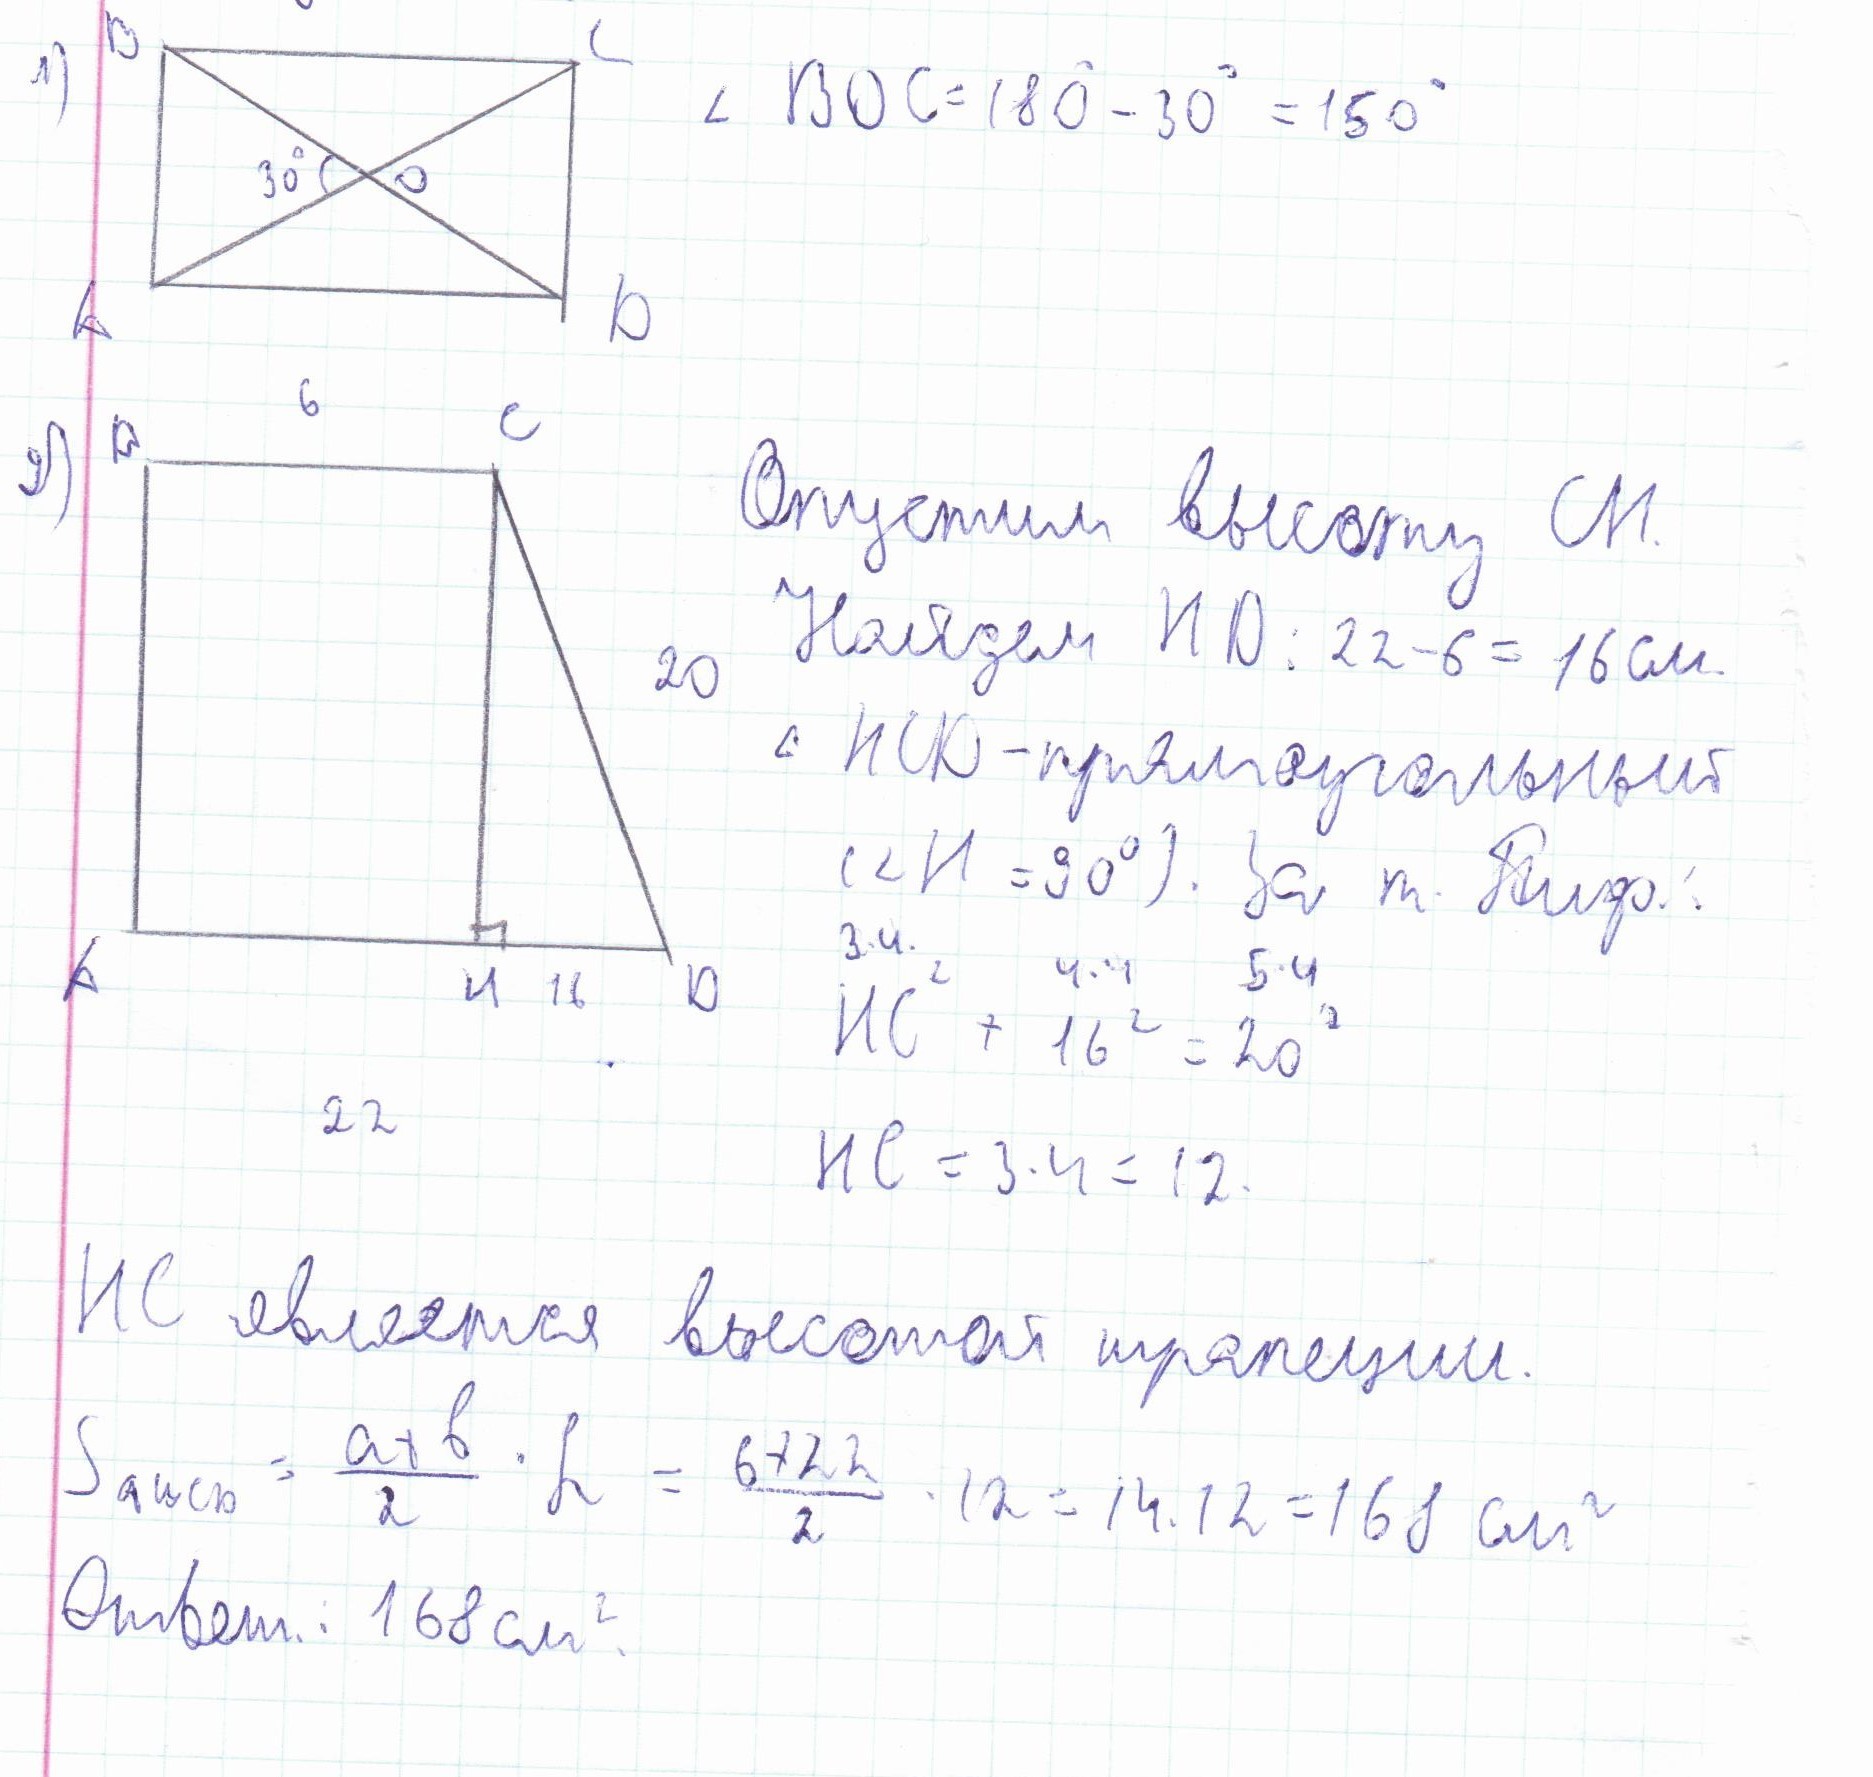 1)
B
C
30°
O
A
D
∠ BOC = 180° - 30° = 150°
9)
B
6
C
20
A
H
16
D
22
Опустим высоту CH.
Найдем HD: 22-6 = 16 см.
Δ HCD - прямоугольный
(∠H = 90°). За т. Пиф.:
3·4 4·4 5·4
HC² + 16² = 20²
HC = 3·4 = 12.
HC является высотой трапеции.
S = a+b/2 · h = 6+22/2 · 12 = 14·12 = 168 см²
Ответ.: 168 см².